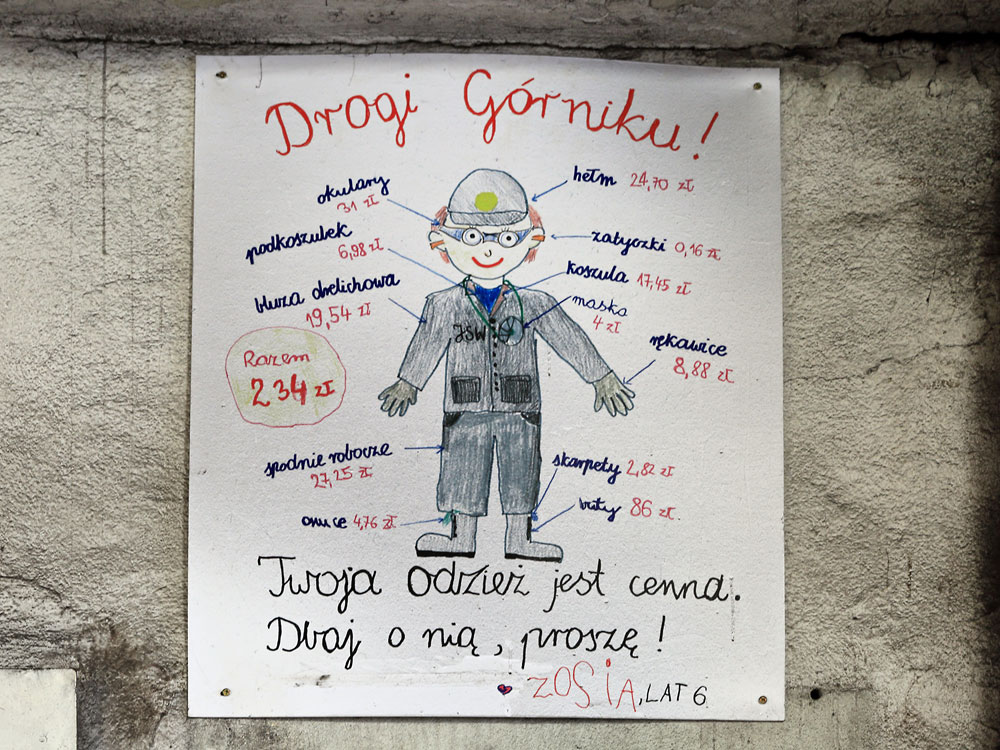 Drogi Górniku!
okulary
31 zł
hełm 24,70 zł
podkoszulek
6,98 zł
zatyczki 0,16 zł
bluza drelichowa
19,54 zł
koszula 17,45 zł
maska
4 zł
JSW
rękawice
8,88 zł
Razem
234 zł
spodnie robocze
27,25 zł
skarpety 2,82 zł
buty 86 zł.
onuce 4,76 zł
Twoja odzież jest cenna.
Dbaj o nią, proszę!
ZOSiA, LAT 6